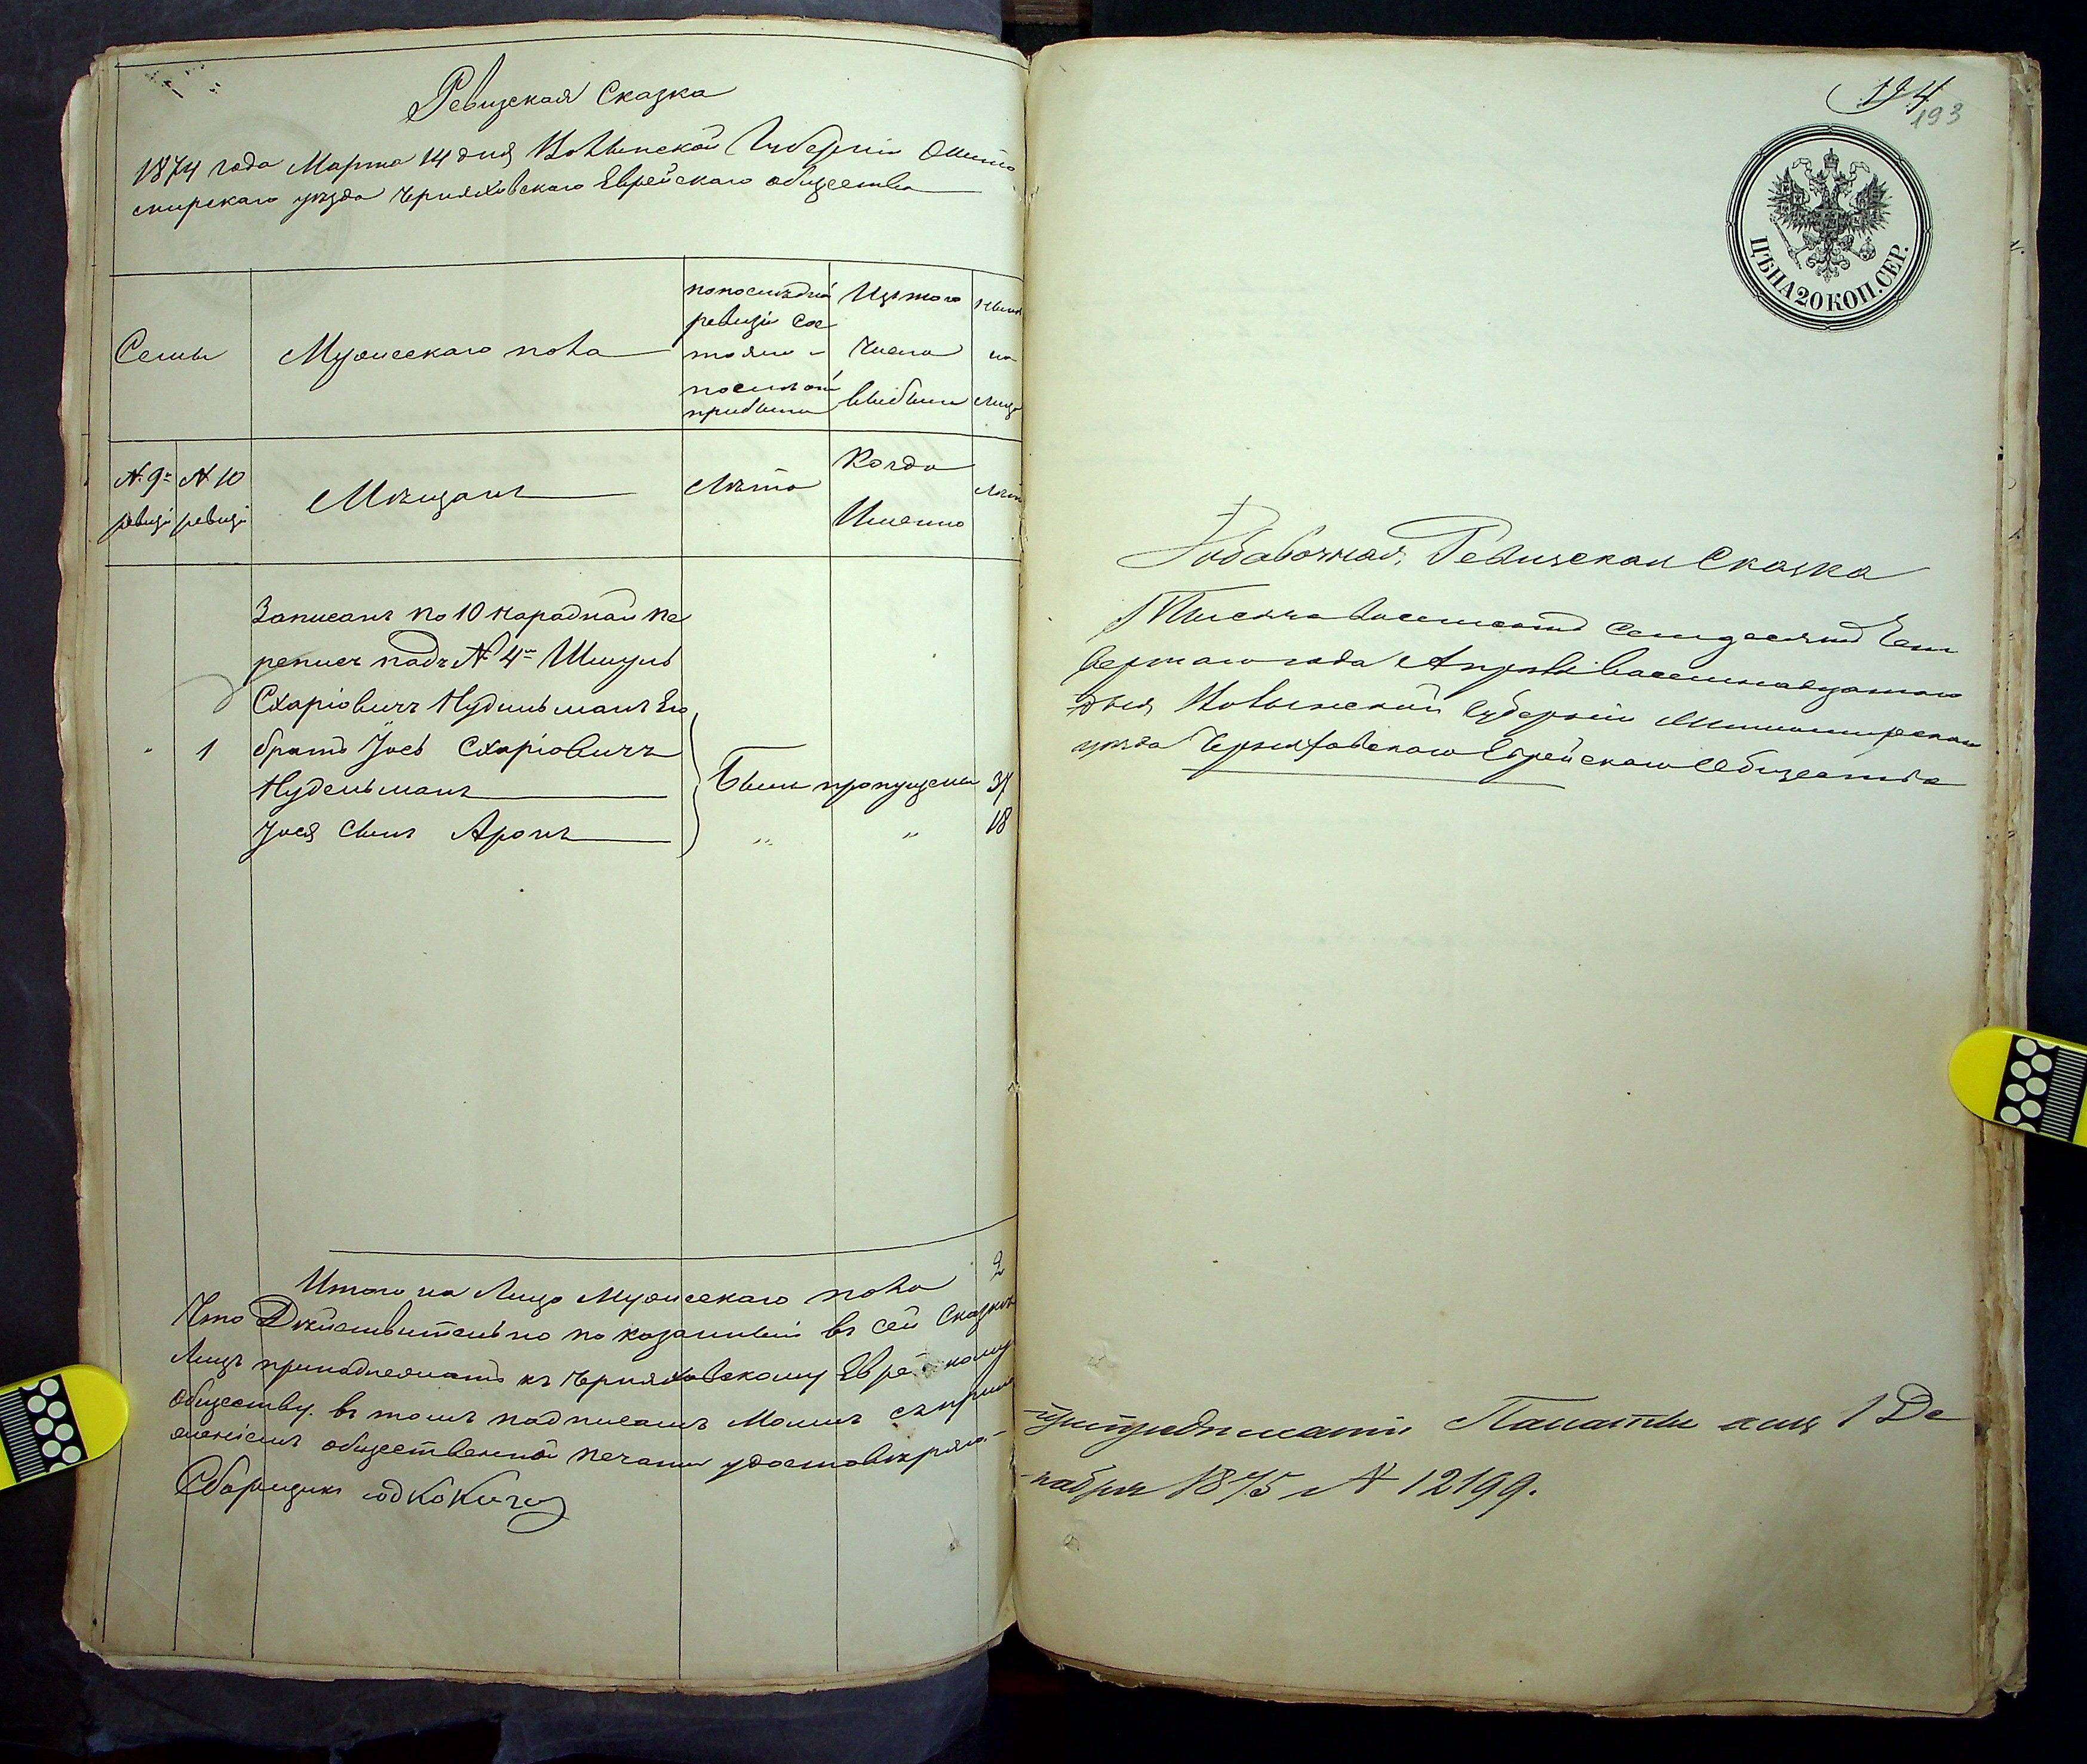 Ревизская Сказка
1874 года Марта 14 дня Волынской Губерніи Жито
мирскаго уѣзда Черняховскаго Еврейскаго общества
Семьи
Мужескаго пола
по послѣдней
ревизіи сос
тояло и
после оной
прибыло
Изъ того
числа
выбыли
Ныне
на
лицо
№ 9й
ревизи
№ 10
ревизи
Мѣщанъ
Лѣта
Когда
Именно
Лѣта
Записанъ по 10 народной пе
реписи подъ № 4м Шмуль
Схаріовичъ Нудельманъ Его
1
братъ Іось Схаріовичъ
Нудельманъ
Были пропущены 37
Іося сынъ Аронъ
" " 18
Итого на Лицо Мужескаго пола 2
Что Дѣйствительно показанныи въ сей Сказкѣ
Лицъ принадлежатъ къ Черняховскому Еврейскому
обществу. въ томъ подписомъ Моимъ съ прило
женіемъ общественной печати удостовѣряю-
Сборщикъ
194
193
ЦѢНА 20 КОП. СЕР.
Добавочная Ревизская Сказка
Тысяча восемьсотъ семдесятъ Чет
вертаго года Апрѣля восемнадцатаго
дня Волынской Губерніи Житомирскаго
уѣзда Черняховскаго Еврейскаго Общества
Палаты отъ 1 Де
кабря 1875 № 12199.